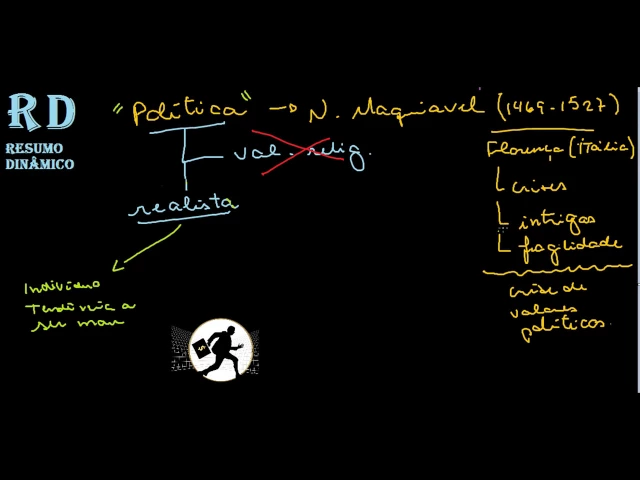 RD
RESUMO
DINÂMICO
"Política" → N. Maquiavel (1469-1527)
val. relig.
realista
Indivíduo
Tendência a
ser mau
Florença (Itália)
crises
intrigas
fragilidade
crise de
valores
políticos.
$